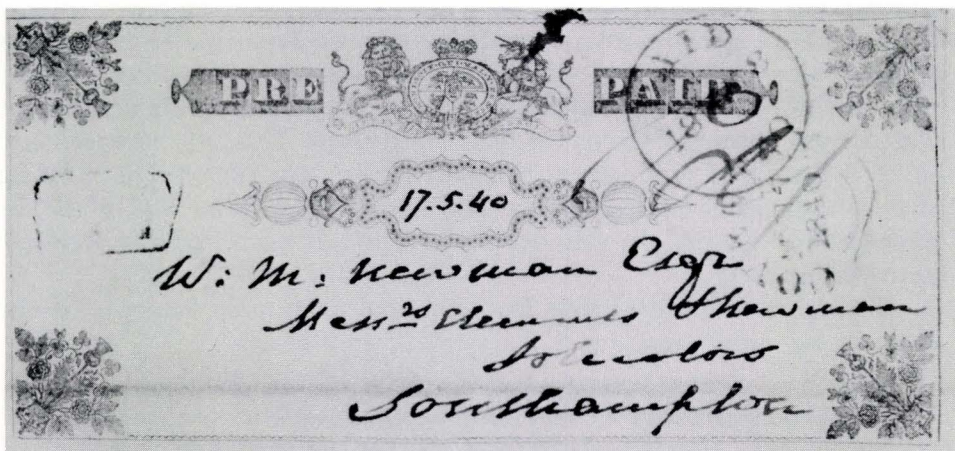 PRE PAID
PAID
17.5.40
W: M: Newman Esqr
Messrs & Newman
Solicitors
Southampton